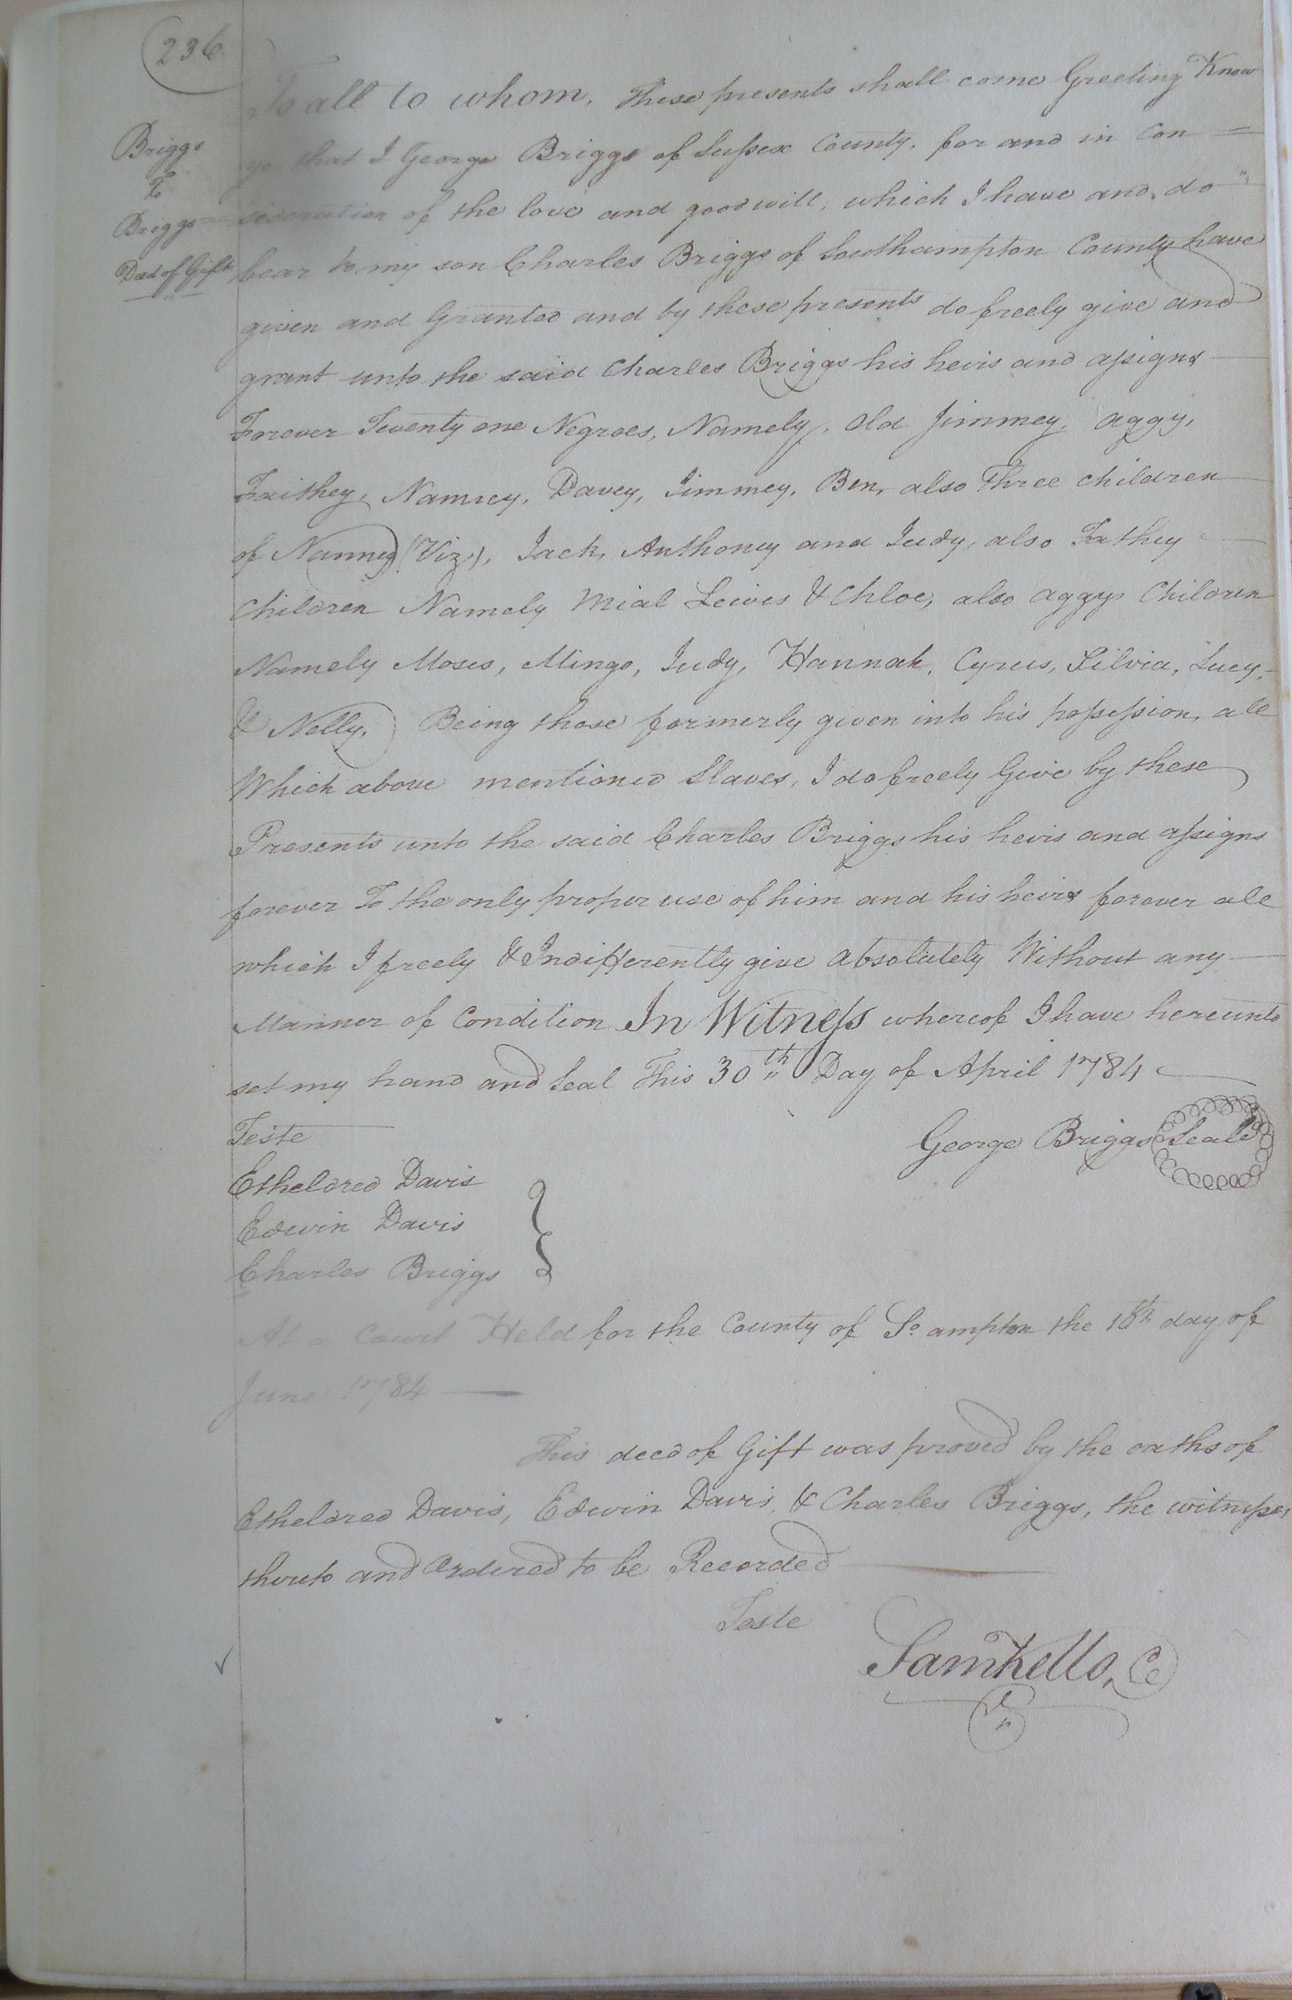 236
To all to whom. These presents shall come Greeting Know
Briggs
To
Briggs
Deed of Gift
ye that I George Briggs of Sussex County, for and in Con
sideration of the love and good will, which I have and do
bear to my son Charles Briggs of Southampton County have
given and Granted and by these presents do freely give and
grant unto the said Charles Briggs his heirs and assigns
Forever Twenty one Negroes, Namely, Old Jimmey, Aggy,
Faithey, Nanney, Davey, Jimmey, Ben, also Three children
of Nanney (Viz.), Jack, Anthoney and Judy, also Fathey
Children Namely Mial Lewis & Chloe, also Aggys Children
Namely Moses, Mingo, Judy, Hannah, Cyrus, Silvia, Lucy,
& Nelly. Being those formerly given into his possession, all
Which above mentioned Slaves, I do freely Give by these
Presents unto the said Charles Briggs his heirs and assigns
forever To the only proper use of him and his heirs forever all
which I freely & Indifferently give absolutely Without any
Manner of Condition In Witness whereof I have hereunto
set my hand and Seal This 30th Day of April 1784
Teste
George Briggs Seal
Etheldred Davis
Edwin Davis
Charles Briggs
At Court Held for the County of So ampton the 10th day of
June 1784
This deed of Gift was proved by the oaths of
Etheldred Davis, Edwin Davis & Charles Briggs, the witnesses
thereto and Ordered to be Recorded
Teste
Sam Kello, Ce